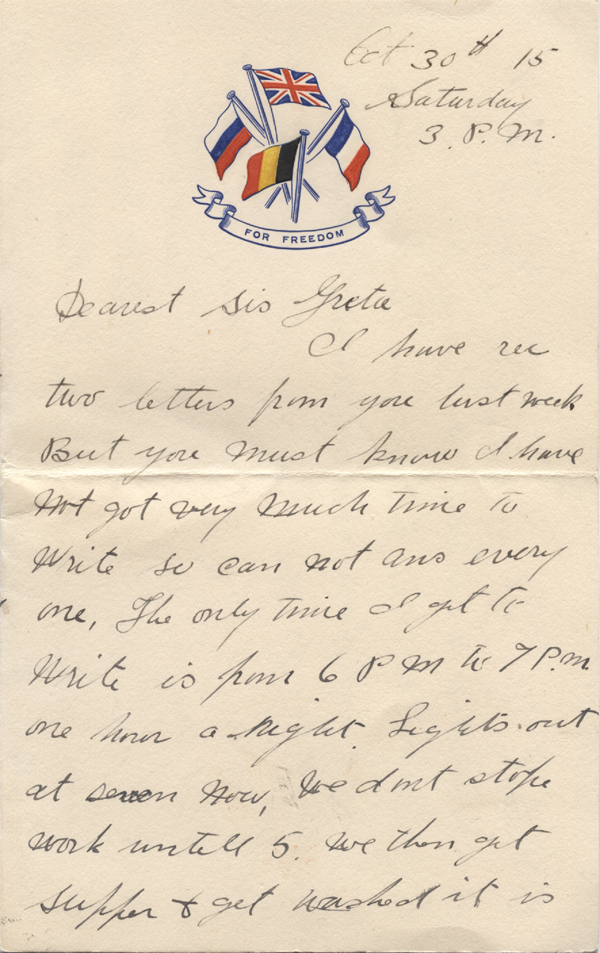 Oct 30th 15
Saturday
3. P.M.
FOR FREEDOM
Dearest Sis Greta
I have rec
two letters from you last week
But you must know I have
not got very much time to
write so can not ans every
one, The only time I get to
write is from 6 P M to 7 P.M.
one hour a night. Lights out
at seven now, We dont stope
work untill 5. We then get
supper & get washed it is